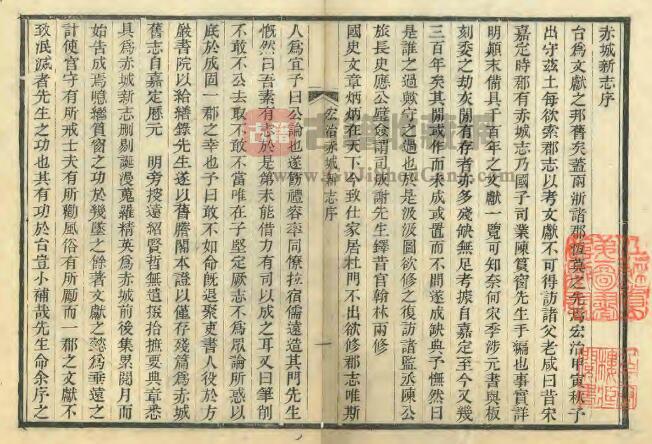 赤城新志序
台爲文獻之邦舊矣葢兩浙諸郡恆莫之先焉宏治甲寅秋予
出守兹土每欲索郡志以考文獻不可得訪諸父老咸曰昔宋
嘉定時郡有赤城志乃國子司業陳篔窗先生手編也事實詳
明顚末備具千百年之文獻一覽可知奈何宋季涉元書與板
刻委之劫灰閒有存者亦多殘缺無足考據自嘉定至今又幾
三百年矣其閒或作而未成或置而不問遂成缺典予憮然曰
是誰之過歟守之過也於是汲汲圖欲修之復訪諸監丞陳公
旅長史應公
僉謂司成謝先生鐸昔官翰林兩修
國史文章炳炳在天下今致仕家居杜門不出欲修郡志唯斯
宏治赤城新志序
一
人爲宜予曰公論也遂飭禮容率同僚拉宿儒遠造其門先生
慨然曰吾素有志於是第未能借力有司以成之耳又曰筆削
不敢不公去取不敢不當唯在子堅定厥志不爲眾論所惑以
底於成固一郡之幸也予曰敢不如命旣退聚吏書人役於方
嚴書院以給繕錄先生遂以舊謄閣本證以僅存殘篇爲赤城
舊志自嘉定應元 明旁搜遠紹賢哲無遺掇拾摭要典章悉
具爲赤城新志刪剔誕漫蒐羅精英爲赤城前後集累閱月而
始告成焉噫繼篔窗之功於幾墜之餘著文獻之懿爲垂遠之
計使官守有所戒士夫有所勸風俗有所勵而一郡之文獻不
致泯滅者先生之功也其有功於台豈小補哉先生命余序之
古籍